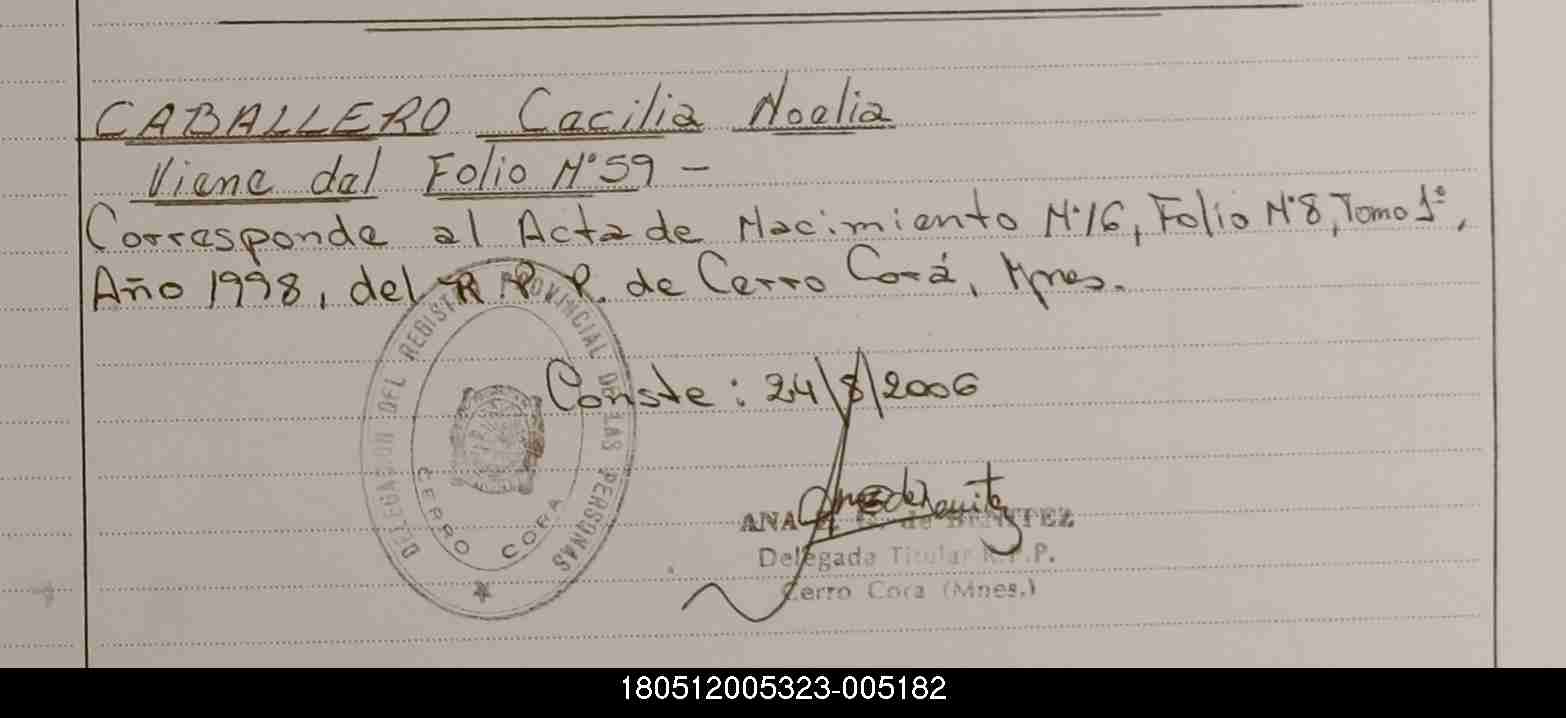 CABALLERO Cecilia Noelia
Viene del Folio Nº59 -
Corresponde al Acta de Nacimiento Nº16, Folio Nº8, Tomo 1º,
Año 1998, del R.P.P. de Cerro Corá, Mnes.
DELEGACION DEL REGISTRO PROVINCIAL DE LAS PERSONAS
CERRO CORA
Conste: 24/8/2006
ANA de BENITEZ
Delegada Titular R.P.P.
Cerro Cora (Mnes.)
180512005323-005182